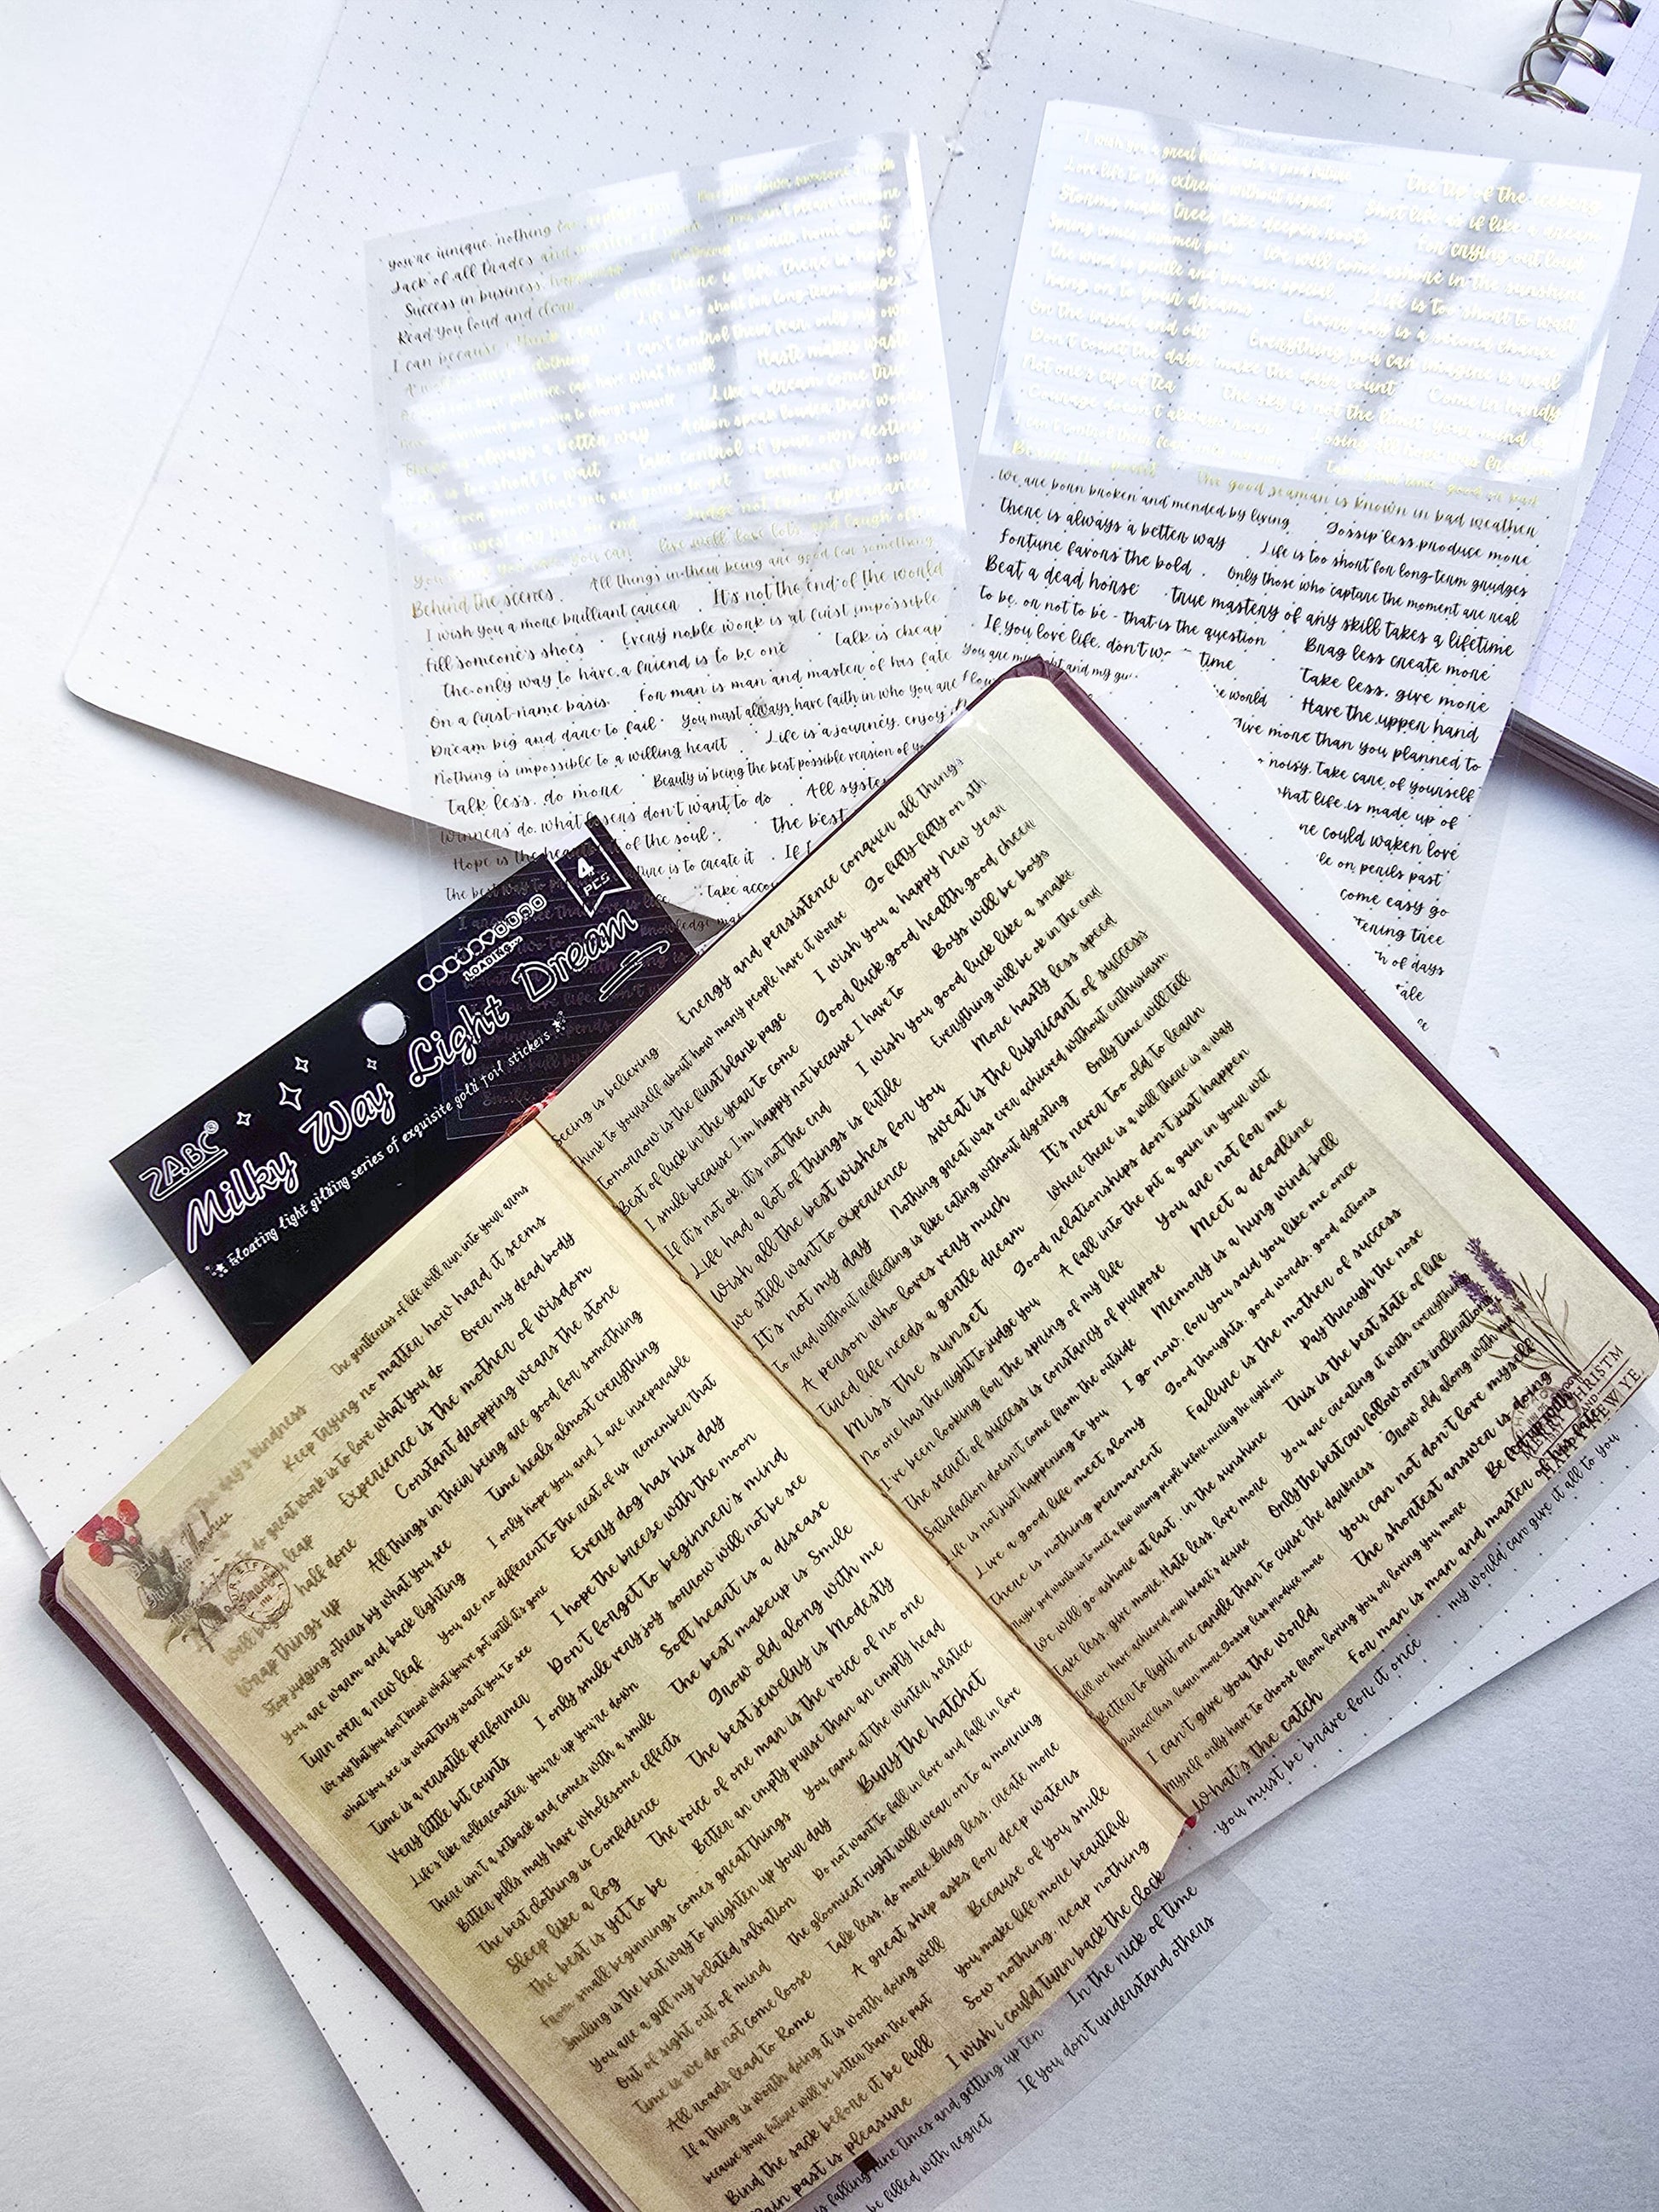 you're unique, nothing can replace you
Jack of all trades and master of none
You can't please everyone
Success in business, happiness
Nothing to write home about
Read you loud and clear
While there is life, there is hope
I can because I think I can
Life is too short for long-term grudges
I can't control their fear, only my own
Haste makes waste
Like a dream come true
There is always a better way
Action speak louder than words
Life is too short to wait
Take control of your own destiny
Better safe than sorry
Judge not from appearances
live well, love lots, and laugh often
All things in their being are good for something
Behind the scenes
It's not the end of the world
I wish you a more brilliant career
Every noble work is at first impossible
Fill someone's shoes
Talk is cheap
The only way to have a friend is to be one
For man is man and master of his fate
On a first-name basis
You must always have faith in who you are
Dream big and dare to fail
Life is a journey, enjoy
Nothing is impossible to a willing heart
Beauty is being the best possible version of
Talk less, do more
All
Winners do what losers don't want to do
the best
Hope is the
of the soul
is to create it
If
The best way to
Take
The tip of the iceberg
Love life to the extreme without regret
Shot life as if like a dream
Storms make trees take deeper roots
For crying out loud
Spring comes, summer goes
We will come ashore in the sunshine
The wind is gentle and you are special
Life is too short to wait
hang on to your dreams
Every day is a second chance
On the inside and out
Everything you can imagine is real
Don't count the days, make the days count
Come in handy
Not one's cup of tea
The sky is not the limit, your mind is
Courage doesn't always roar
Losing all hope was freedom
I can't control their fear only my own
The good seaman is known in bad weather
We are born broken and mended by living
Gossip less, produce more
There is always a better way
Life is too short for long-term grudges
Fortune favors the bold
Only those who capture the moment are real
Beat a dead horse
True mastery of any skill takes a lifetime
To be, or not to be - that is the question
Brag less create more
If you love life, don't
time
Take less, give more
the world
Have the upper hand
Give more than you planned to
noisy, Take care of yourself
what life is made up of
could waken love
on perils past
come easy go
tree
of days
4
PCS
LOADING...
ZABC®
Milky Way Light Dream
Floating light gilding series of exquisite gold foil stickers
Energy and persistence conquer all things
Seeing is believing
Go fifty-fifty on sth
Think to yourself about how many people have it worse
I wish you a happy New Year
Tomorrow is the first blank page
Good luck, good health, good cheer
Best of luck in the year to come
Boys will be boys
I smile because I'm happy not because I have to
I wish you good luck like a snake
If it's not ok, it's not the end
Everything will be ok in the end
Life had a lot of things is futile
More hasty less speed
Wish all the best wishes for you
Sweat is the lubricant of success
We still want to experience
Nothing great was ever achieved without enthusiasm
It's not my day
Only time will tell
To read without reflecting is like eating without digesting
It's never too old to learn
A person who loves very much
Where there is a will there is a way
Tired life needs a gentle dream
Good relationships don't just happen
Miss the sunset
A fall into the pit a gain in your wit
No one has the right to judge you
You are not for me
I've been looking for the spring of my life
Meet a deadline
The secret of success is constancy of purpose
Memory is a hung wind-bell
Satisfaction doesn't come from the outside
I go now, for you said you like me once
Life is not just happening to you
Good thoughts, good words, good actions
Live a good life meet slowly
Failure is the mother of success
There is nothing permanent
Pay through the nose
Maybe god wants us to meet a few wrong people before meeting the right one
This is the best state of life
We will go ashore at last, in the sunshine
You are creating it with everything
Take less, give more. Hate less, love more
Only the best can follow one's inclination
Till we have achieved our heart's desire
Grow old along with me
Better to light one candle than to curse the darkness
You can not don't love myself
Distract less learn more. Gossip less produce more
The shortest answer is doing
I can't give you the world
Myself only have to choose from loving you or loving you more
For man is man and master of his fate
What's the catch
my world can give it all to you
you must be brave for it once
MERRY CHRISTM
AND
NEW YE
The gentleness of life will run into your arms
day's kindness
Keep trying no matter how hard it seems
to do great work is to love what you do
Over my dead body
leap
Experience is the mother of wisdom
Well begun
half done
Constant dropping wears the stone
Wrap things up
All things in their being are good for something
Stop judging others by what you see
Time heals almost everything
You are warm and back lighting
I only hope you and I are inseparable
Turn over a new leaf
You are no different to the rest of us, remember that
We say that you don't know what you've got until it's gone
Every dog has his day
What you see is what they want you to see
I hope the breeze with the moon
Time is a versatile performer
Don't forget to beginner's mind
Very little bit counts
I only smile very joy sorrow will not be see
Life's like rollercoaster, you're up you're down
Soft heart is a disease
There isn't a setback and comes with a smile
The best makeup is Smile
Bitter pills may have wholesome effects
Grow old along with me
The best clothing is Confidence
The best jewelry is Modesty
Sleep like a log
The voice of one man is the voice of no one
The best is yet to be
Better an empty purse than an empty head
From small beginnings comes great things
You came at the winter solstice
Smiling is the best way to brighten up your day
Bury the hatchet
You are a gift my belated salvation
Do not want to fall in love and fall in love
Out of sight out of mind
The gloomiest night will wear on to a morning
Time is we do not come loose
Talk less, do more. Brag less, create more
All roads lead to Rome
A great ship asks for deep waters
If a thing is worth doing it is worth doing well
Because of you smile
because your future will be better than the past
You make life more beautiful
Bind the sack before it be full
Sow nothing, reap nothing
Pain past is pleasure
I wish i could turn back the clock
is falling nine times and getting up ten
In the nick of time
be filled with regret
If you don't understand others